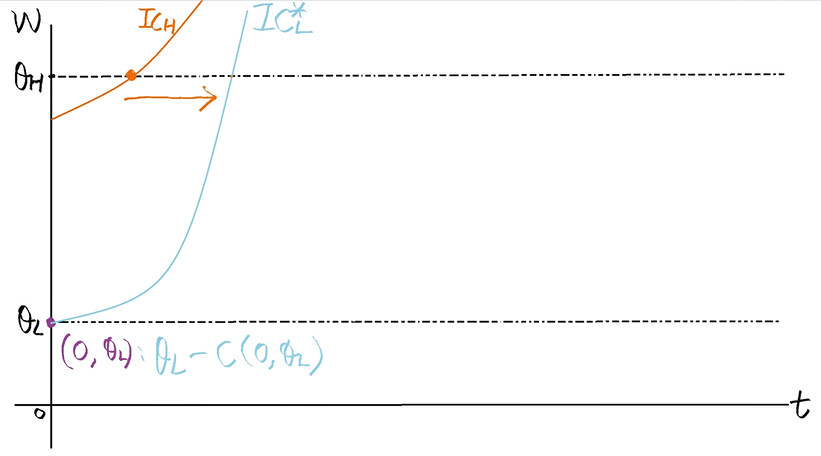 W
IC_H
IC*_L
θ_H
θ_L
(0, θ_L): θ_L - C(0, θ_L)
0
t